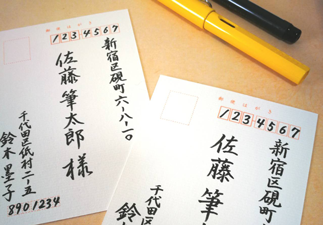 郵便はがき
1234567
新宿区硯町六-八-二〇
佐藤筆太郎様
千代田区紙村二-五
鈴木墨子
8901234
郵便はがき
1234567
新宿区硯町
佐藤筆
千代田区
鈴